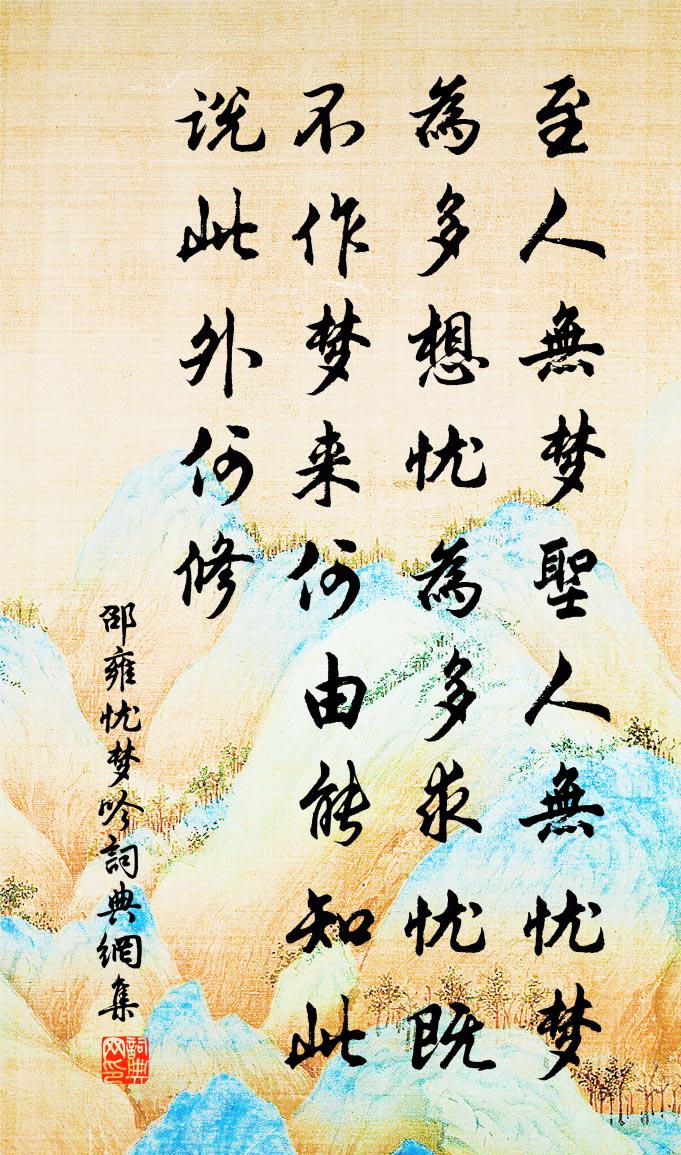 至人無梦聖人無忧梦
為多想忧為多求忧既
不作梦来何由能知此
説此外何修
邵雍忧梦吟詞典網集
詞典
网印